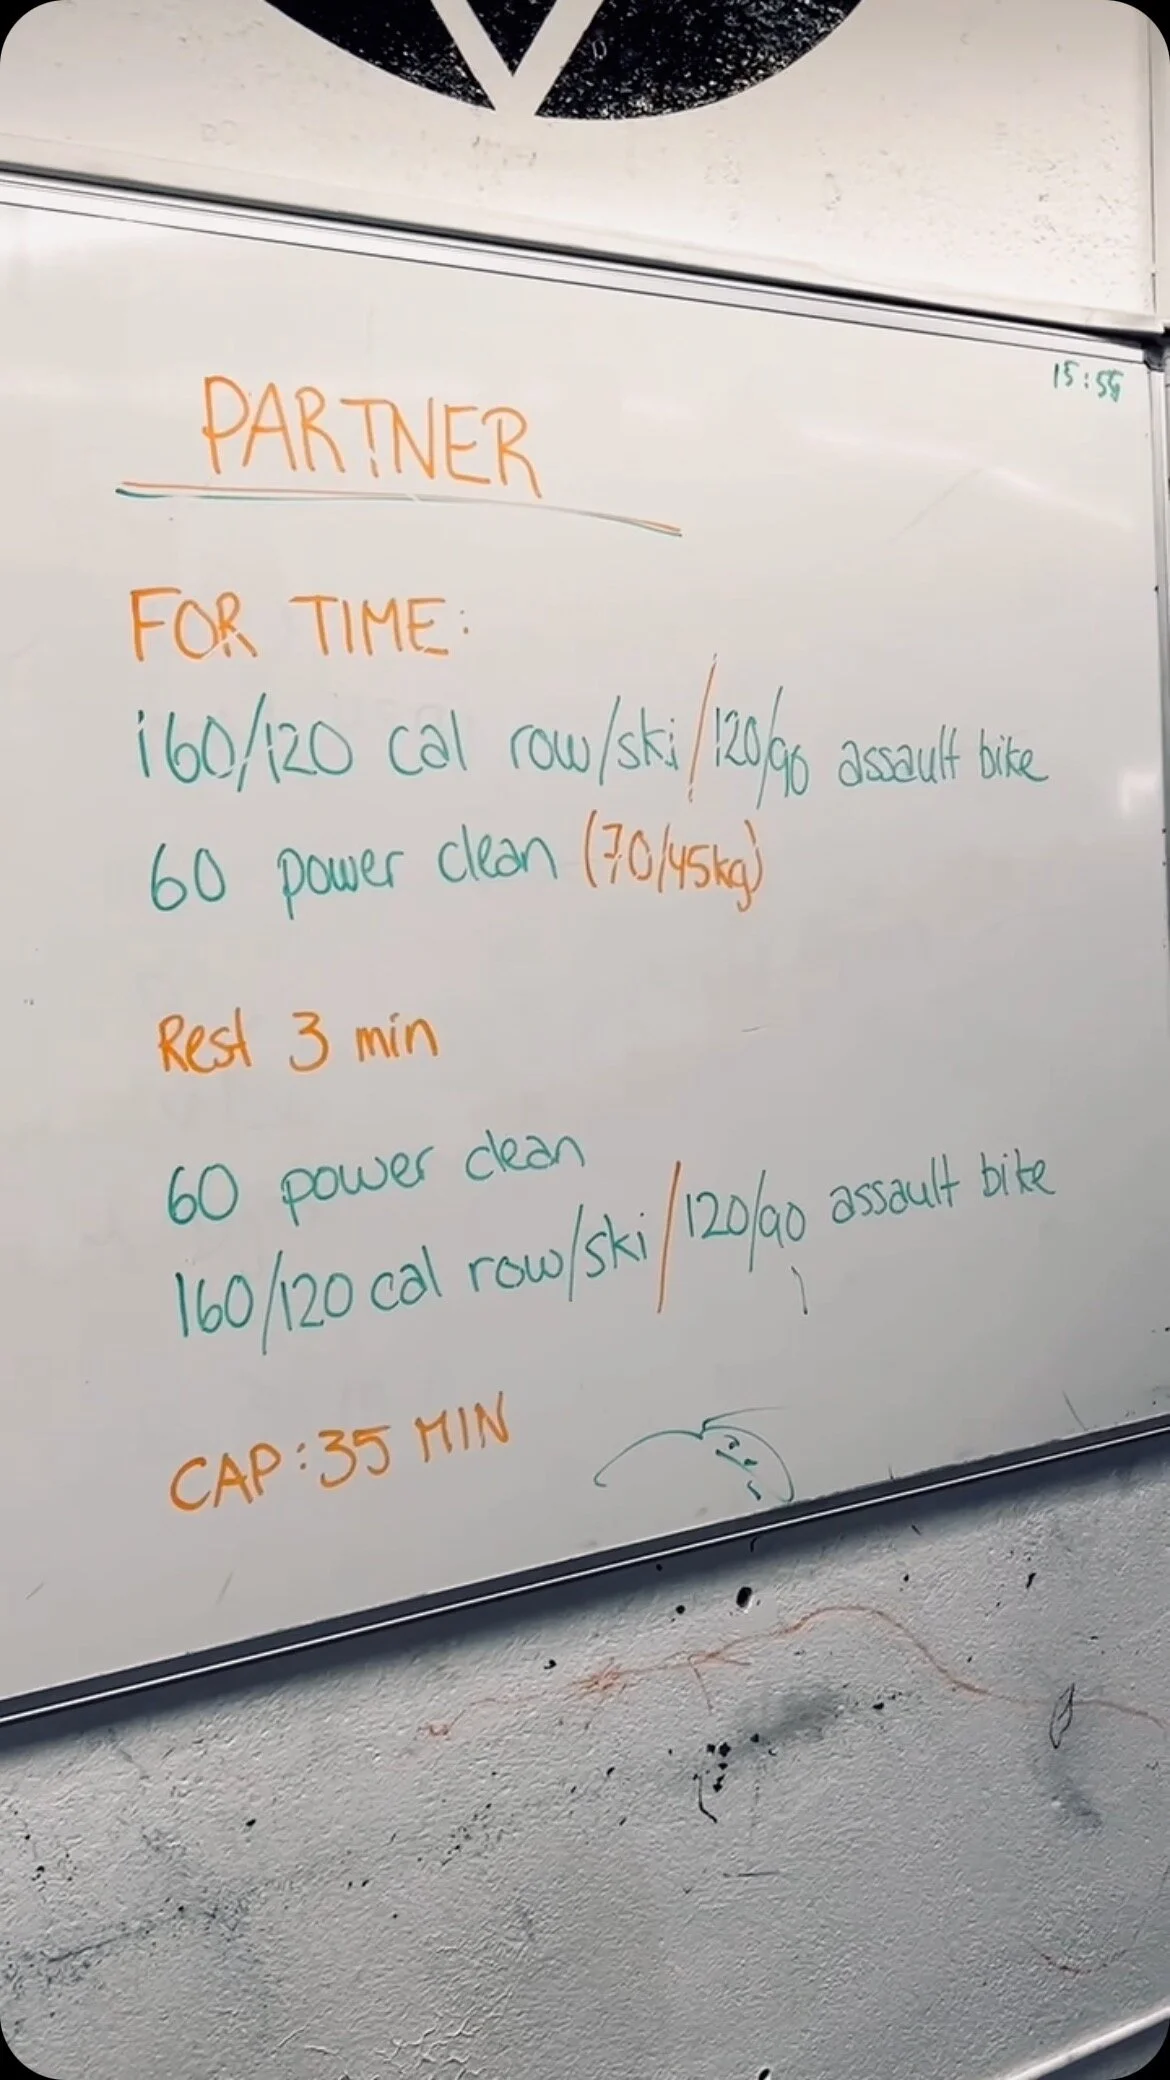 15:55
PARTNER
FOR TIME:
160/120 cal row/ski/120/90 assault bike
60 power clean (70/45kg)
Rest 3 min
60 power clean
160/120 cal row/ski/120/90 assault bike
CAP: 35 MIN